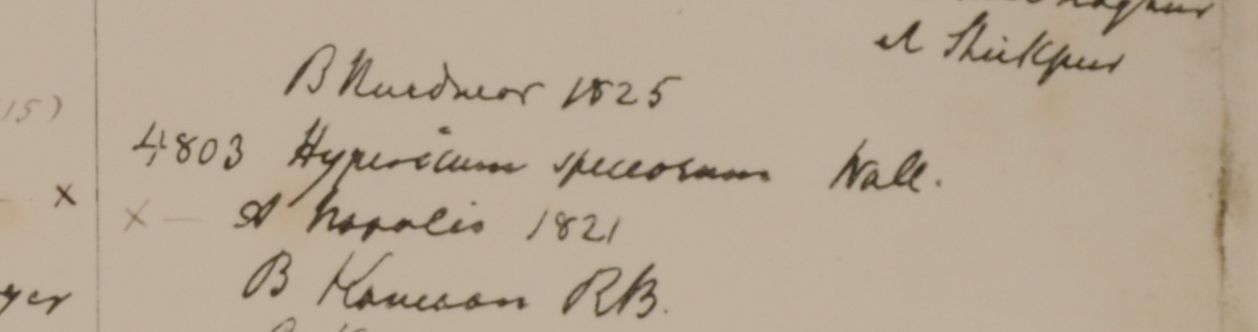 et Shikpur
B Hurdwar 1825
15)
4803 Hypericum speciosum Wall.
x
x — A Napalia 1821
B Kamaon RB.
yer